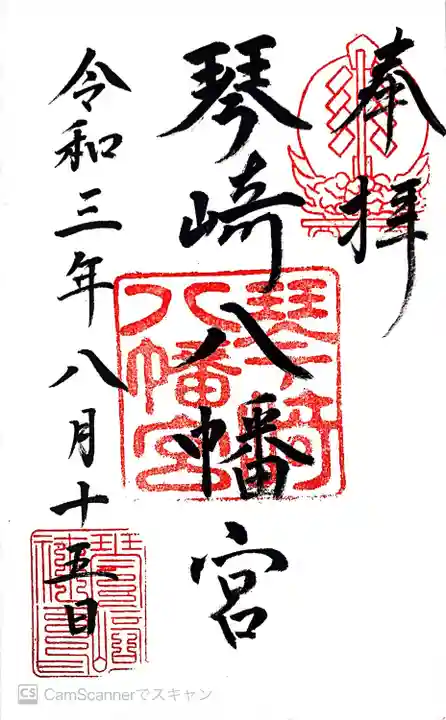 奉拝
琴崎八幡宮
琴崎
八幡宮
令和三年八月十五日
CS CamScannerでスキャン